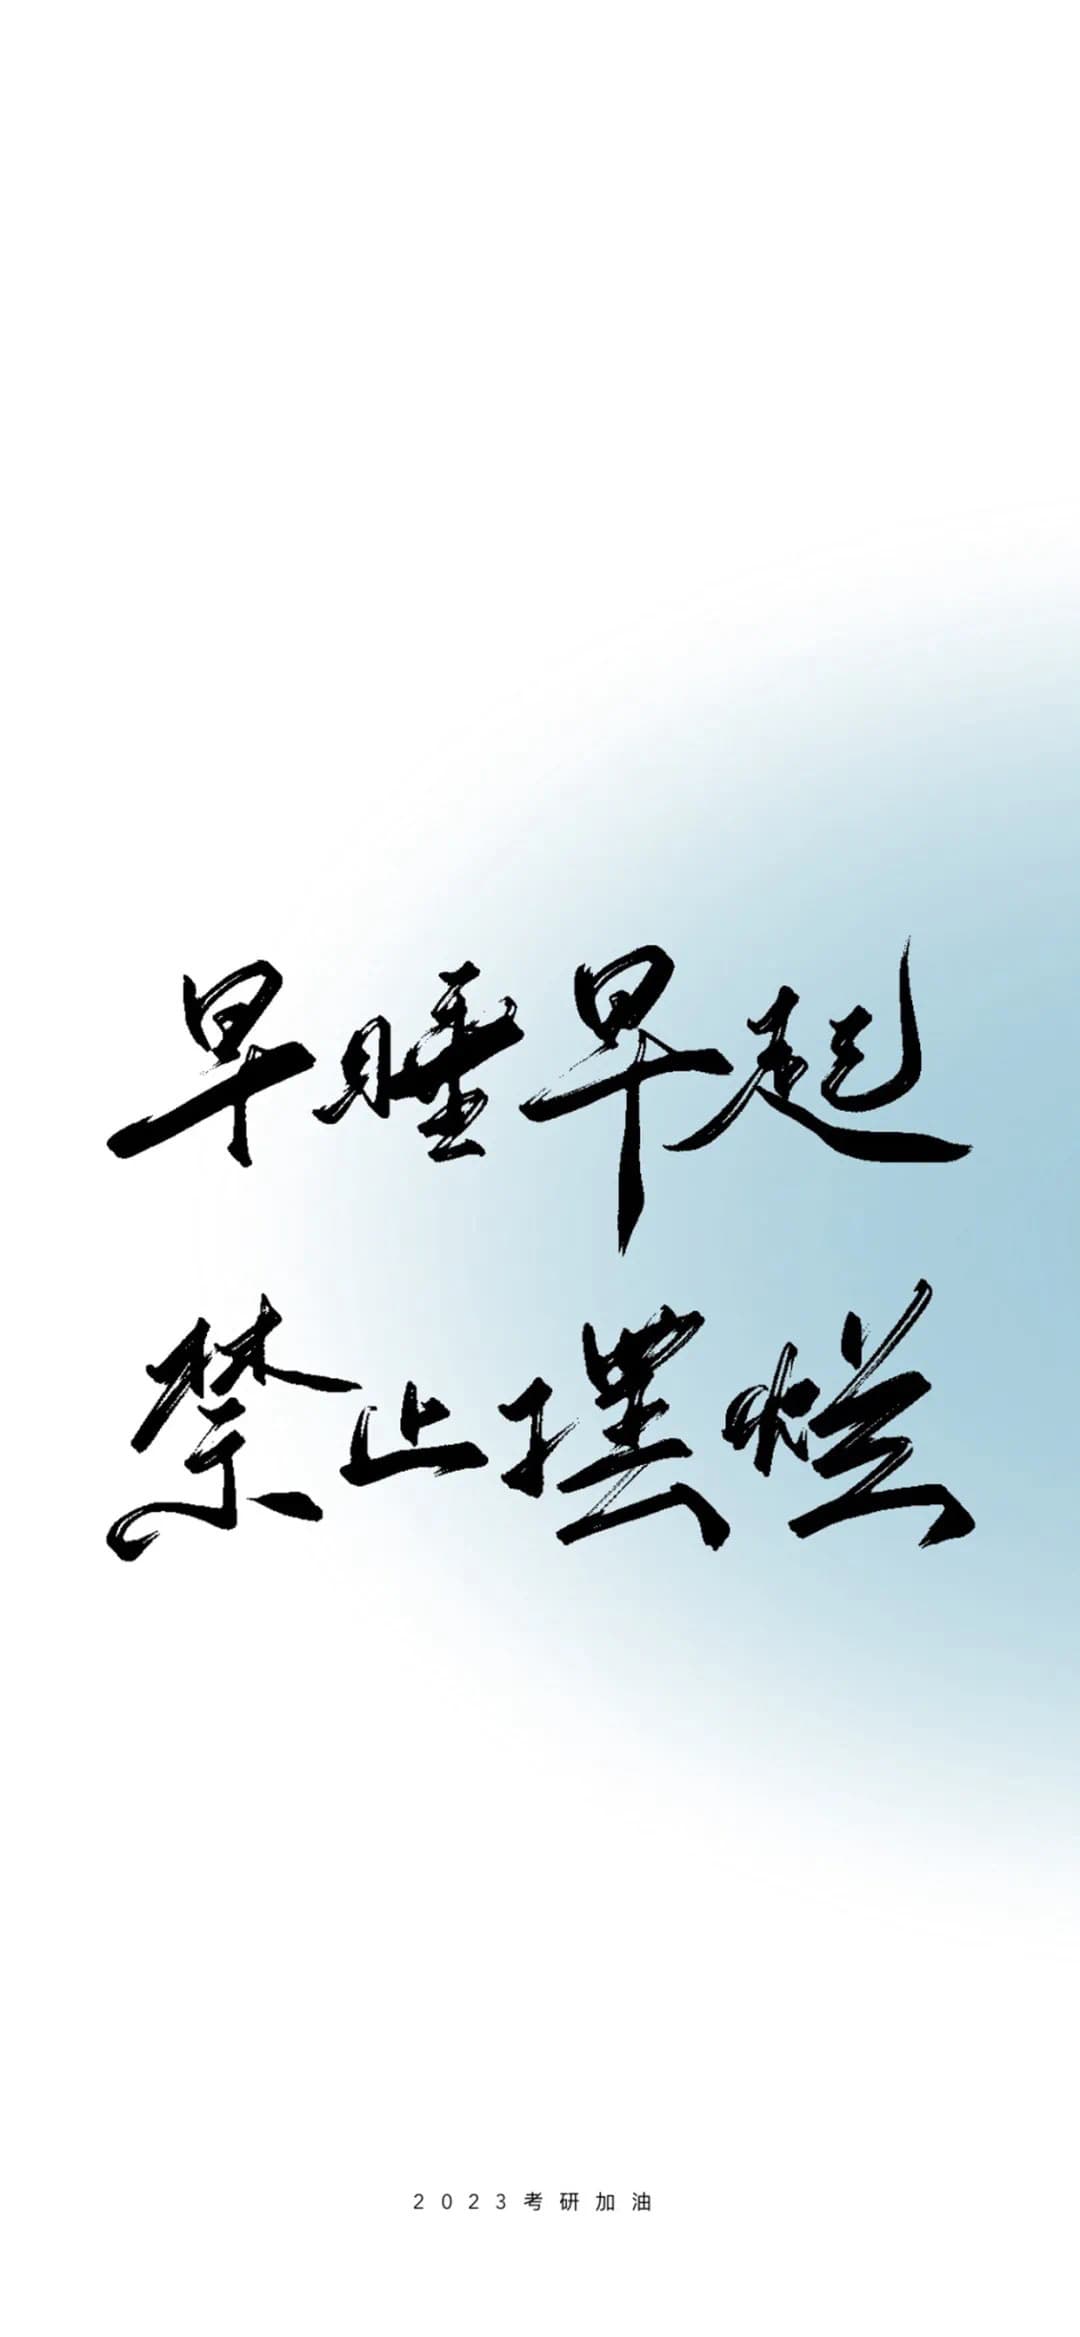 早睡早起
禁止摆烂
2023考研加油